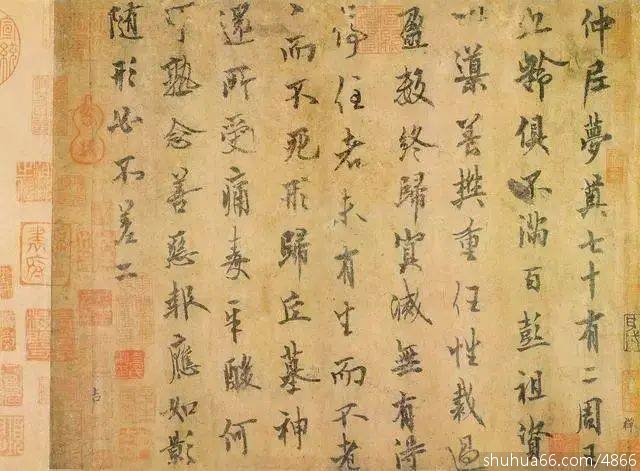 仲尼夢奠七十有二周王
九齡俱不滿百彭祖資
以導養樊重任性裁過
盈數終歸冥滅無有得
停住者未有生而不老
〻而不死形歸丘墓神
還所受痛毒辛酸何
可熟念善惡報應如影
隨形必不差二
shuhua66.com/4866